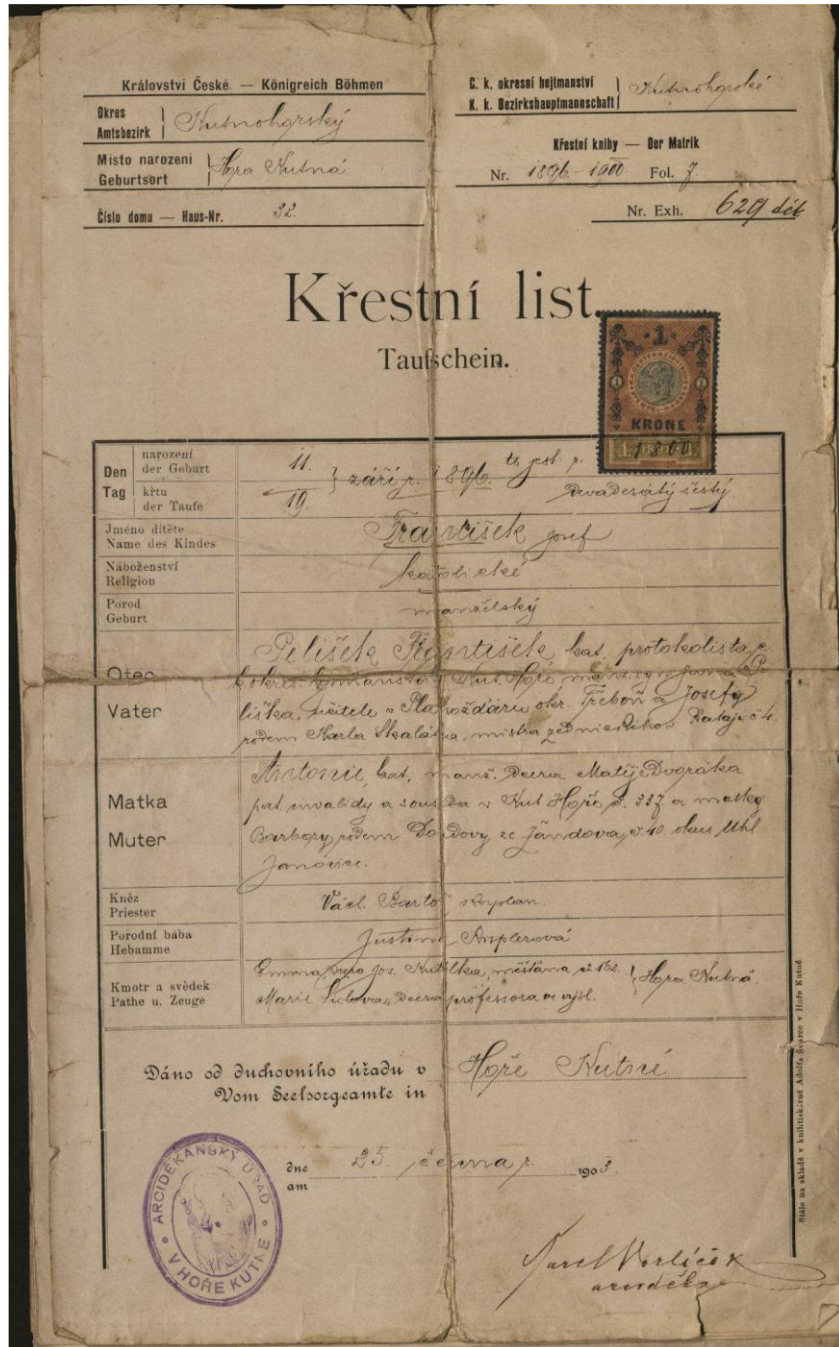 Království České. — Königreich Böhmen
Okres
Amtsbezirk
Kutnohorský
Místo narození
Geburtsort
Hora Kutná
Číslo domu — Haus-Nr. 32.
C. k. okresní hejtmanství
K. k. Bezirkshauptmannschaft
Kutnohorské
Křestní knihy — Der Matrik
Nr. 1896-1900 Fol. 7.
Nr. Exh. 629
Křestní list.
Taufschein.
1
KRONE
Den
Tag
narození
der Geburt
11.
křtu
der Taufe
19.
září r. 1896. to jest r.
devadesátý šestý
Jméno dítěte
Name des Kindes
František Josef
Náboženství
Religion
katolické
Porod
Geburt
manželský
Otec
Vater
Pelíšek František, kat. protokolista
okres. hejtmanství v Kut. Hoře
učitele v okr. Třeboň a Josefy
rodem Karla mistra zednického
Matka
Muter
Antonie, kat., manž. dcera Matěje Dvořáka
pat. invalidy a souseda v Kut. Hoře č. 337 a matky
Barbory, rodem ze Jandova, č. 40 okres Uhl.
Janovice.
Kněz
Priester
Václ. Bartoš kaplan.
Porodní bába
Hebamme
Justina
Kmotr a svědek
Pathe u. Zeuge
Emma, dcera Jos. měšťana, č. 162.
Marie dcera professora ve výsl.
Hora Kutná.
Dáno od duchovního úřadu v
Vom Seelsorgeamte in
Hoře Kutné
dne
am
25. června r. 1903.
ARCIDĚKANSKÝ ÚŘAD
V HOŘE KUTNÉ
Karel Vorlíček
arciděkan
Stále na skladě v knihtiskárně Adolfa Švarce v Hoře Kutné